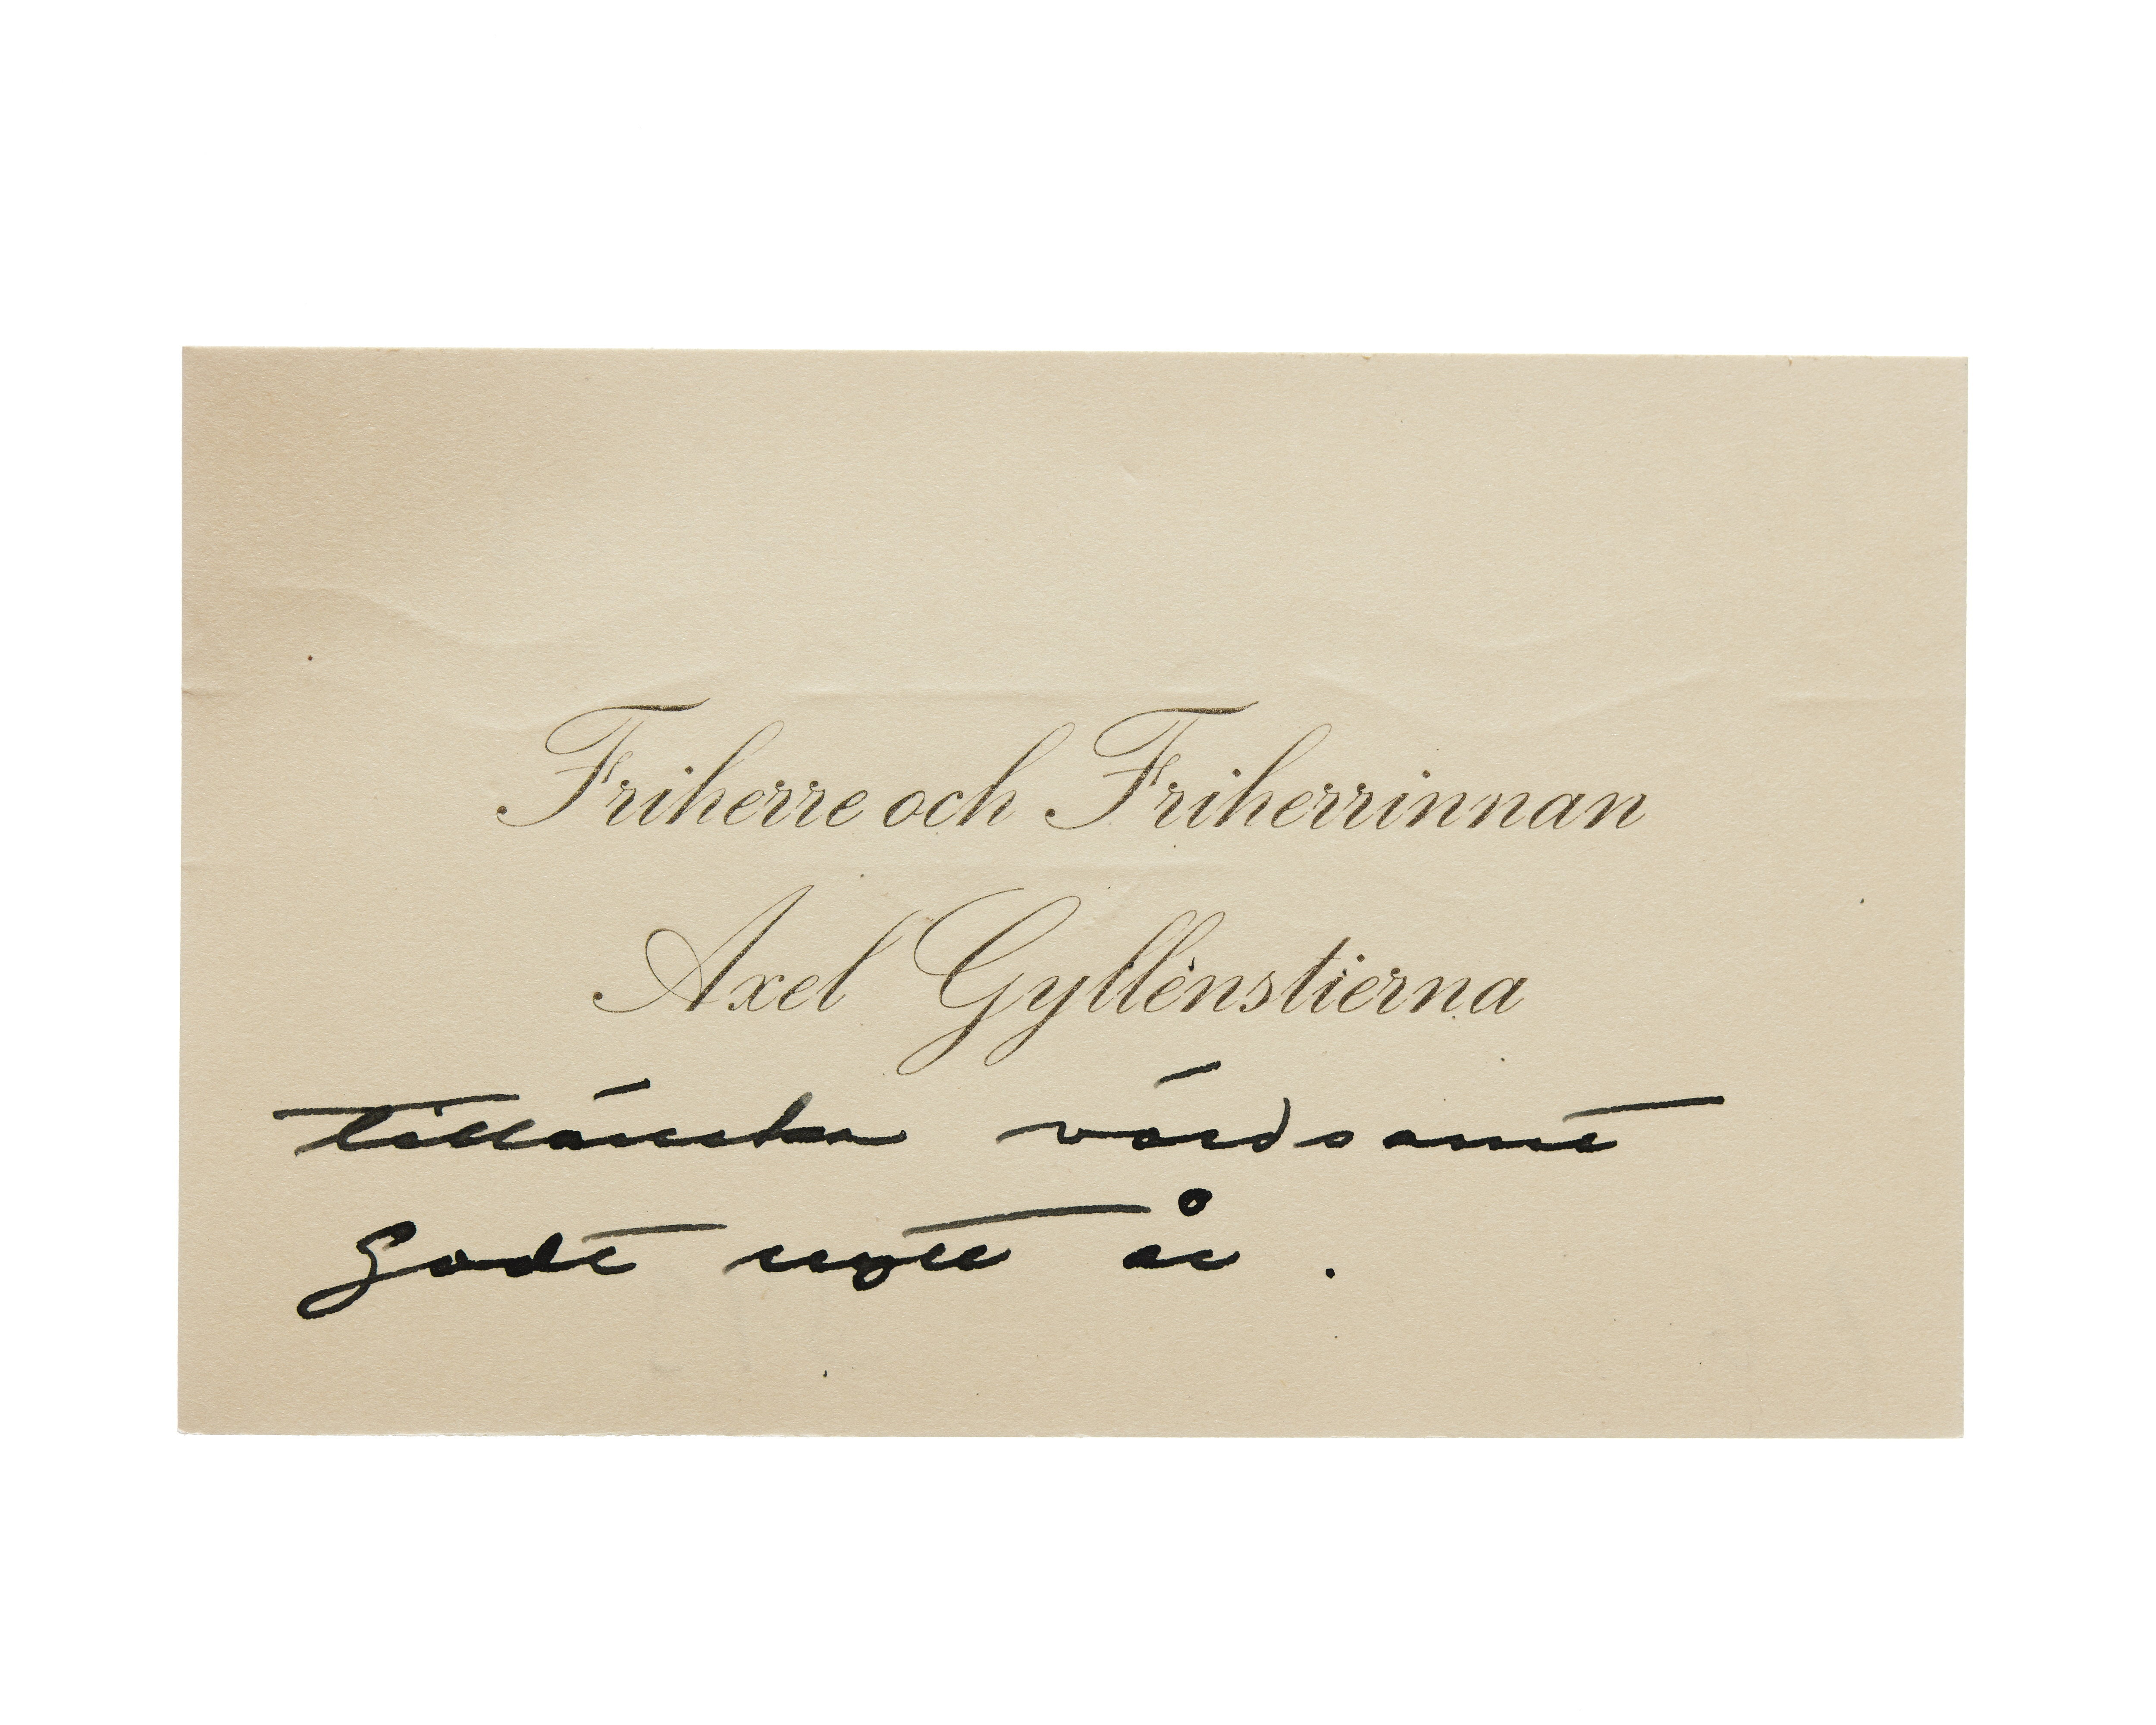 Friherre och Friherrinnan
Axel Gyllenstierna
tillönska vördsamt
Godt nytt år.